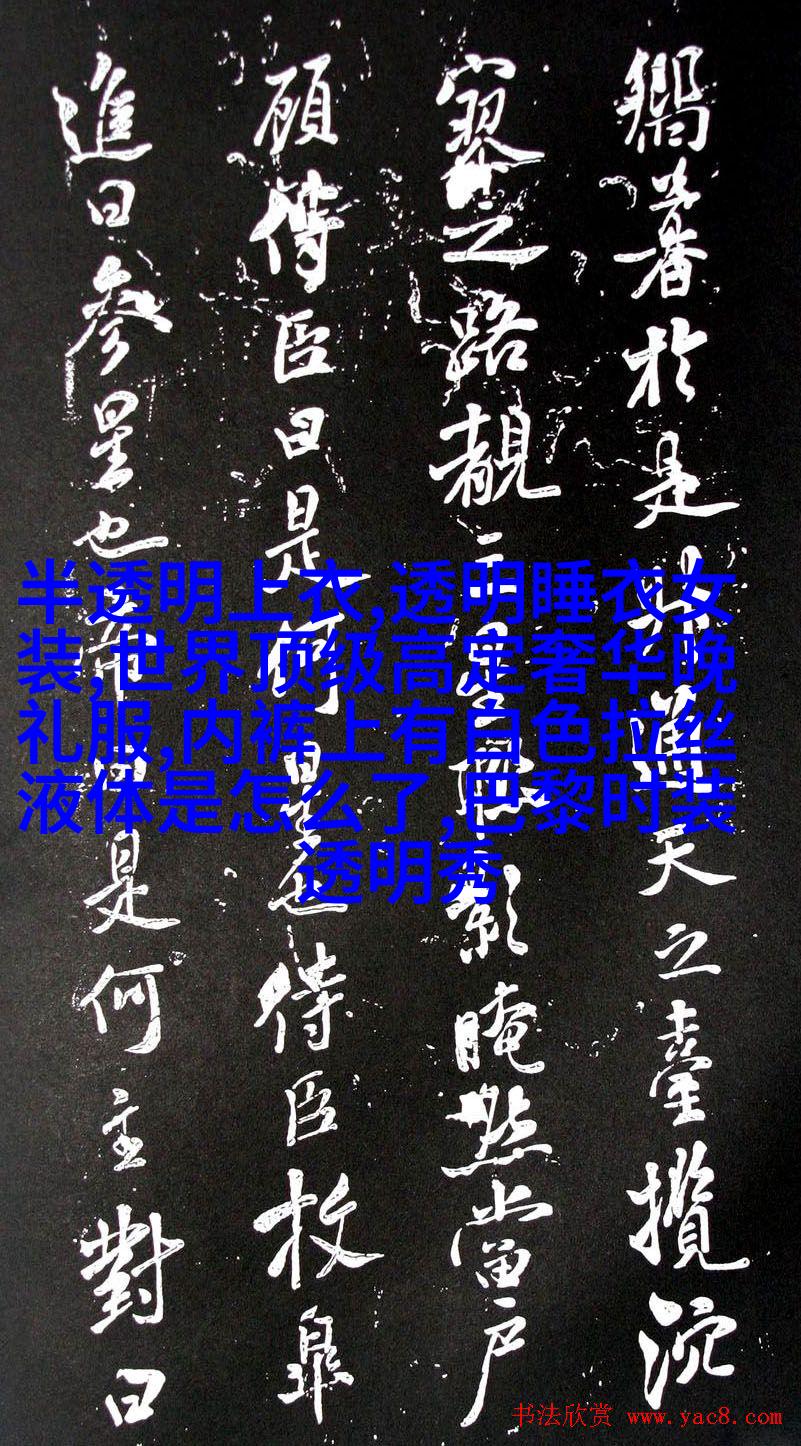 於是天之臺攬沉
寥之路靚晻然當戶
顧侍臣曰是何星也侍臣枚皋
進曰參星也帝曰是何主對曰
半透明上衣,透明睡衣女
装,世界顶级高定奢华晚
礼服,内裤上有白色拉丝
液体是怎么了,巴黎时装
透明秀
书法欣赏 www.yac8.com